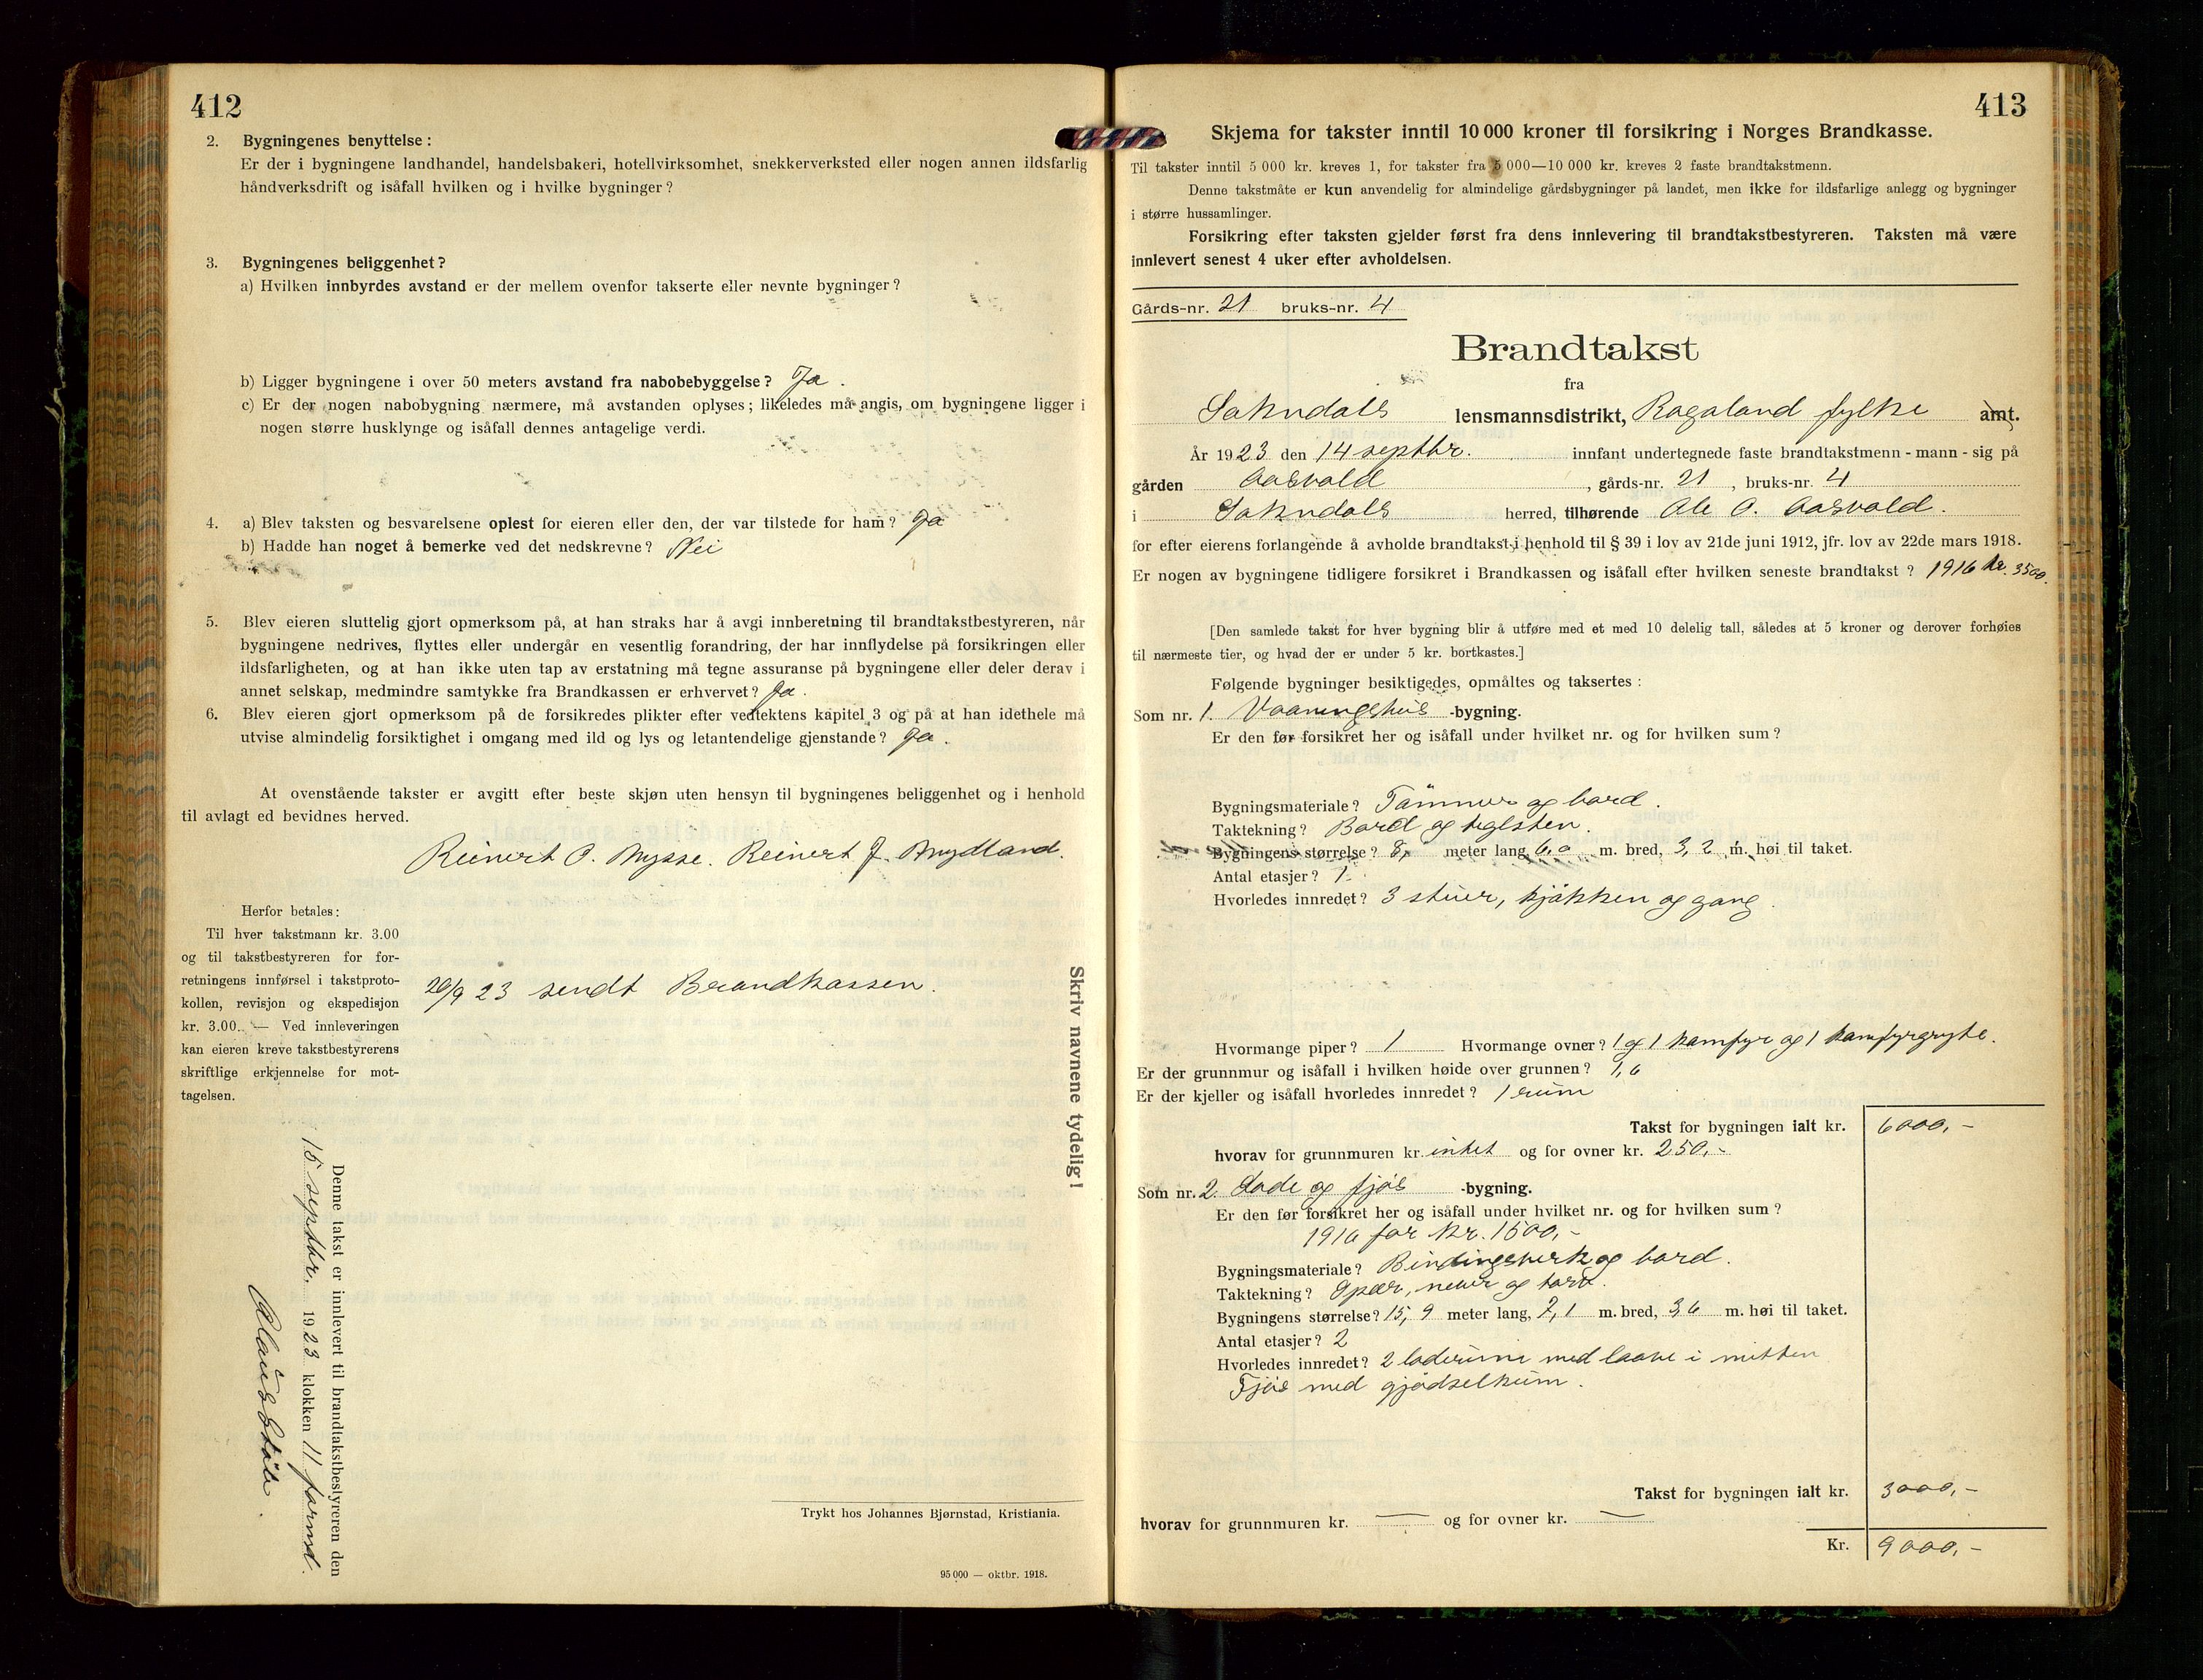 412
2. Bygningenes benyttelse:
Er der i bygningene landhandel, handelsbakeri, hotellvirksomhet, snekkerverksted eller nogen annen ildsfarlig
håndverksdrift og isåfall hvilken og i hvilke bygninger?
3. Bygningenes beliggenhet?
a) Hvilken innbyrdes avstand er der mellem ovenfor takserte eller nevnte bygninger?
b) Ligger bygningene i over 50 meters avstand fra nabobebyggelse? Ja.
c) Er der nogen nabobygning nærmere, må avstanden oplyses; likeledes må angis, om bygningene ligger i
nogen større husklynge og isåfall dennes antagelige verdi.
4. a) Blev taksten og besvarelsene oplest for eieren eller den, der var tilstede for ham? Ja
b) Hadde han noget å bemerke ved det nedskrevne? Nei
5. Blev eieren sluttelig gjort opmerksom på, at han straks har å avgi innberetning til brandtakstbestyreren, når
bygningene nedrives, flyttes eller undergår en vesentlig forandring, der har innflydelse på forsikringen eller
ildsfarligheten, og at han ikke uten tap av erstatning må tegne assuranse på bygningene eller deler derav i
annet selskap, medmindre samtykke fra Brandkassen er erhvervet? Ja.
6. Blev eieren gjort opmerksom på de forsikredes plikter efter vedtektens kapitel 3 og på at han idethele må
utvise almindelig forsiktighet i omgang med ild og lys og letantendelige gjenstande? Ja.
At ovenstående takster er avgitt efter beste skjøn uten hensyn til bygningenes beliggenhet og i henhold
til avlagt ed bevidnes herved.
Reinert O. Mysse. Reinert J. Mydland.
Herfor betales:
Til hver takstmann kr. 3.00
og til takstbestyreren for for-
retningens innførsel i takstproto-
kollen, revisjon og ekspedisjon
kr. 3.00. — Ved innleveringen
kan eieren kreve takstbestyrerens
skriftlige erkjennelse for mot-
tagelsen.
20/9 23 sendt Brandkassen.
Skriv navnene tydelig!
Denne takst er innlevert til brandtakstbestyreren den
15 septbr. 1923 klokken 11 formd.
Trykt hos Johannes Bjørnstad, Kristiania.
95 000 — oktbr. 1918.
413
Skjema for takster inntil 10 000 kroner til forsikring i Norges Brandkasse.
Til takster inntil 5 000 kr. kreves 1, for takster fra 5 000—10 000 kr. kreves 2 faste brandtakstmenn.
Denne takstmåte er kun anvendelig for almindelige gårdsbygninger på landet, men ikke for ildsfarlige anlegg og bygninger
i større hussamlinger.
Forsikring efter taksten gjelder først fra dens innlevering til brandtakstbestyreren. Taksten må være
innlevert senest 4 uker efter avholdelsen.
Gårds-nr. 21 bruks-nr. 4
Brandtakst
fra
Sokndals lensmannsdistrikt, Rogaland fylke amt.
År 1923 den 14 septbr. innfant undertegnede faste brandtakstmenn - mann - sig på
gården Aasvold, gårds-nr. 21, bruks-nr. 4
i Sokndals herred, tilhørende Ole O. Aasvold.
for efter eierens forlangende å avholde brandtakst i henhold til § 39 i lov av 21de juni 1912, jfr. lov av 22de mars 1918.
Er nogen av bygningene tidligere forsikret i Brandkassen og isåfall efter hvilken seneste brandtakst? 1916 kr. 3500.
[Den samlede takst for hver bygning blir å utføre med et med 10 delelig tall, således at 5 kroner og derover forhøies
til nærmeste tier, og hvad der er under 5 kr. bortkastes.]
Følgende bygninger besiktigedes, opmåltes og taksertes:
Som nr. 1. Vaaningshus -bygning.
Er den før forsikret her og isåfall under hvilket nr. og for hvilken sum?
Bygningsmateriale? Tømmer og bord.
Taktekning? Bord og teglsten.
Bygningens størrelse? 8, meter lang, 6,0 m. bred, 3,2 m. høi til taket.
Antal etasjer? 1.
Hvorledes innredet? 3 stuer, kjøkken og gang.
Hvormange piper? 1 Hvormange ovner? 1 og 1 komfyr og 1 komfyrgryte.
Er der grunnmur og isåfall i hvilken høide over grunnen? 1,6
Er der kjeller og isåfall hvorledes innredet? 1 rum
Takst for bygningen ialt kr. 6000,-
hvorav for grunnmuren kr. intet og for ovner kr. 250,-
Som nr. 2. Lade og fjøs -bygning.
Er den før forsikret her og isåfall under hvilket nr. og for hvilken sum?
1916 for kr. 1500,-
Bygningsmateriale? Bindingsverk og bord.
Taktekning? Spær, never og torv.
Bygningens størrelse? 15,9 meter lang, 7,1 m. bred, 3,6 m. høi til taket.
Antal etasjer? 2
Hvorledes innredet? 2 laderum med laave i mitten
Fjøs med gjødselkum.
Takst for bygningen ialt kr. 3000,-
hvorav for grunnmuren kr. — og for ovner kr. —
Kr. 9000,-